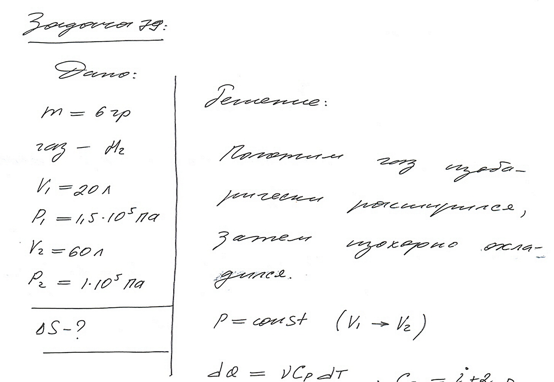 Задача 79:
Дано:
m = 6 гр
газ – H₂
V₁ = 20 л
P₁ = 1,5·10⁵ Па
V₂ = 60 л
P₂ = 1·10⁵ Па
ΔS – ?
Решение:
Положим газ изоба-
рически расширился,
затем изохорно охла-
дился.
P = const (V₁ → V₂)
dQ = νCₚdT